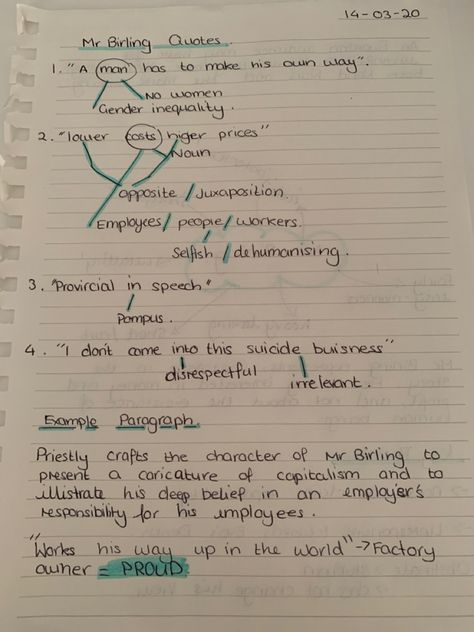 14-03-20
Mr Birling Quotes.
1. "A man has to make his own way".
No women
Gender inequality.
2. "lower costs higer prices"
Noun
opposite / Juxaposition
Employees / people / workers.
Selfish / dehumanising.
3. "Provircial in speech"
Pompus.
4. "I don't come into this suicide buisness"
disrespectful
irrelevant.
Example Paragraph.
Priestly crafts the character of Mr Birling to
present a caricature of capitalism and to
illistrate his deep belief in an employer's
responsibility for his employees.
"Works his way up in the world" → Factory
owner = PROUD